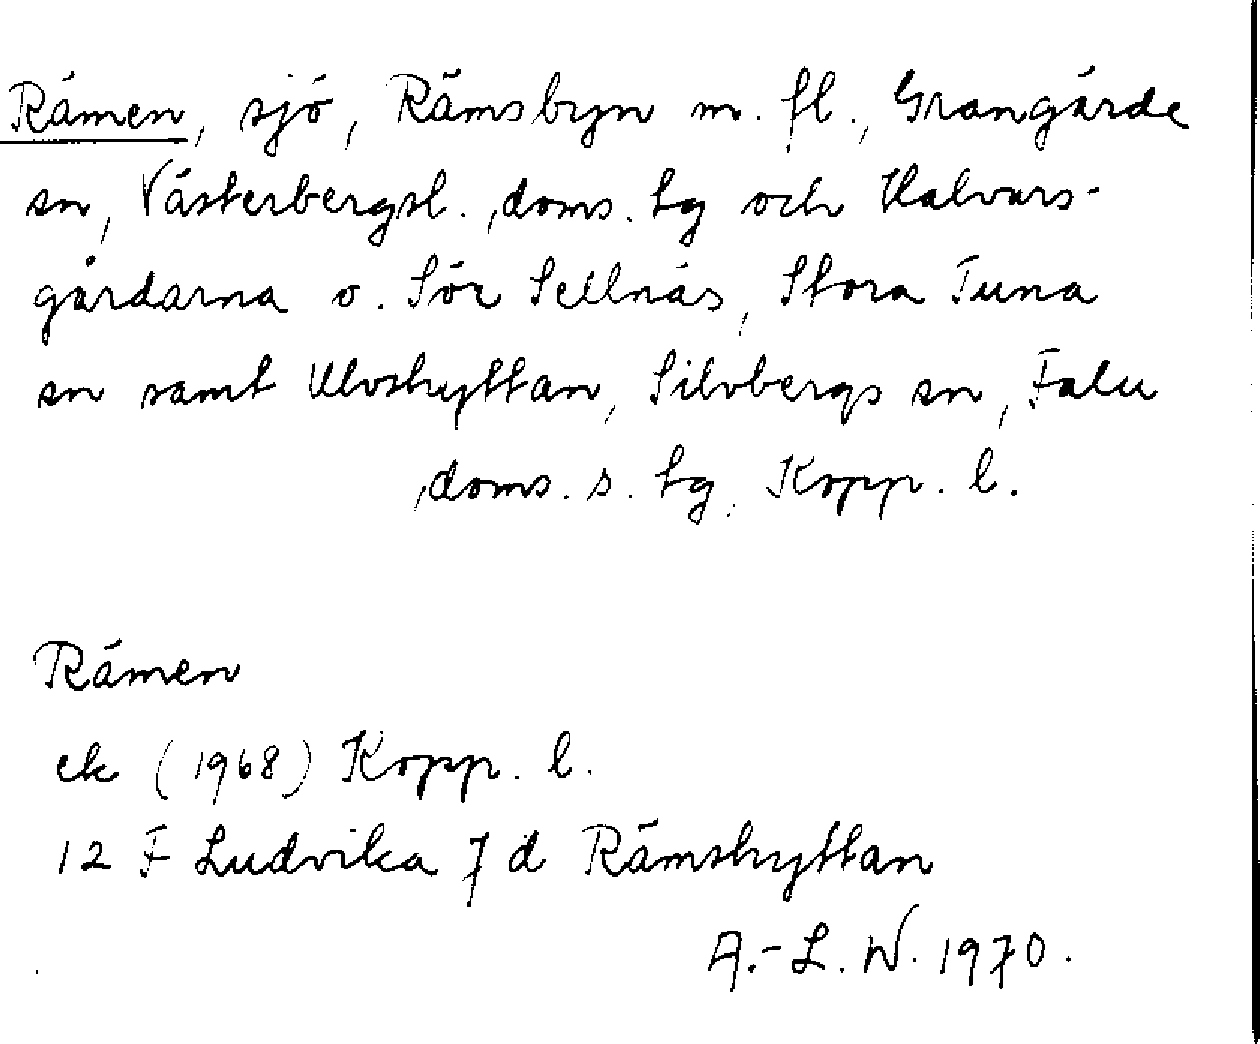 Rämen, sjö, Rämsbyn m. fl., Grangärde
sn, Västerbergsl. doms. tg och Halvars-
gårdarna o. Sör Sellnäs, Stora Tuna
sn samt Ulvshyttan, Silvbergs sn, Falu
doms. s. tg, Kopp. l.
Rämen
ek (1968) Kopp. l.
12 F Ludvika 7 d Rämshyttan
A.-L. W. 1970.